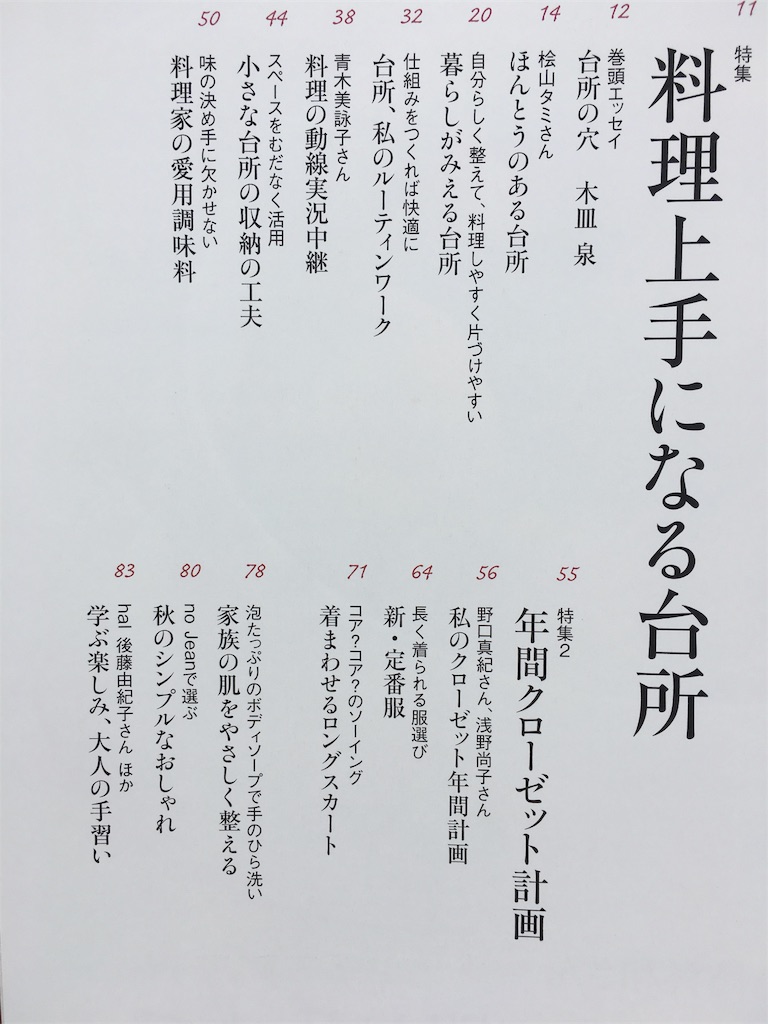 11
特集
料理上手になる台所
12
巻頭エッセイ
台所の穴　木皿 泉
14
桧山タミさん
ほんとうのある台所
20
自分らしく整えて、料理しやすく片づけやすい
暮らしがみえる台所
32
仕組みをつくれば快適に
台所、私のルーティンワーク
38
青木美詠子さん
料理の動線実況中継
44
スペースをむだなく活用
小さな台所の収納の工夫
50
味の決め手に欠かせない
料理家の愛用調味料
55
特集2
年間クローゼット計画
56
野口真紀さん、浅野尚子さん
私のクローゼット年間計画
64
長く着られる服選び
新・定番服
71
コア？コア？のソーイング
着まわせるロングスカート
78
泡たっぷりのボディソープで手のひら洗い
家族の肌をやさしく整える
80
no Jeanで選ぶ
秋のシンプルなおしゃれ
83
hal 後藤由紀子さん ほか
学ぶ楽しみ、大人の手習い